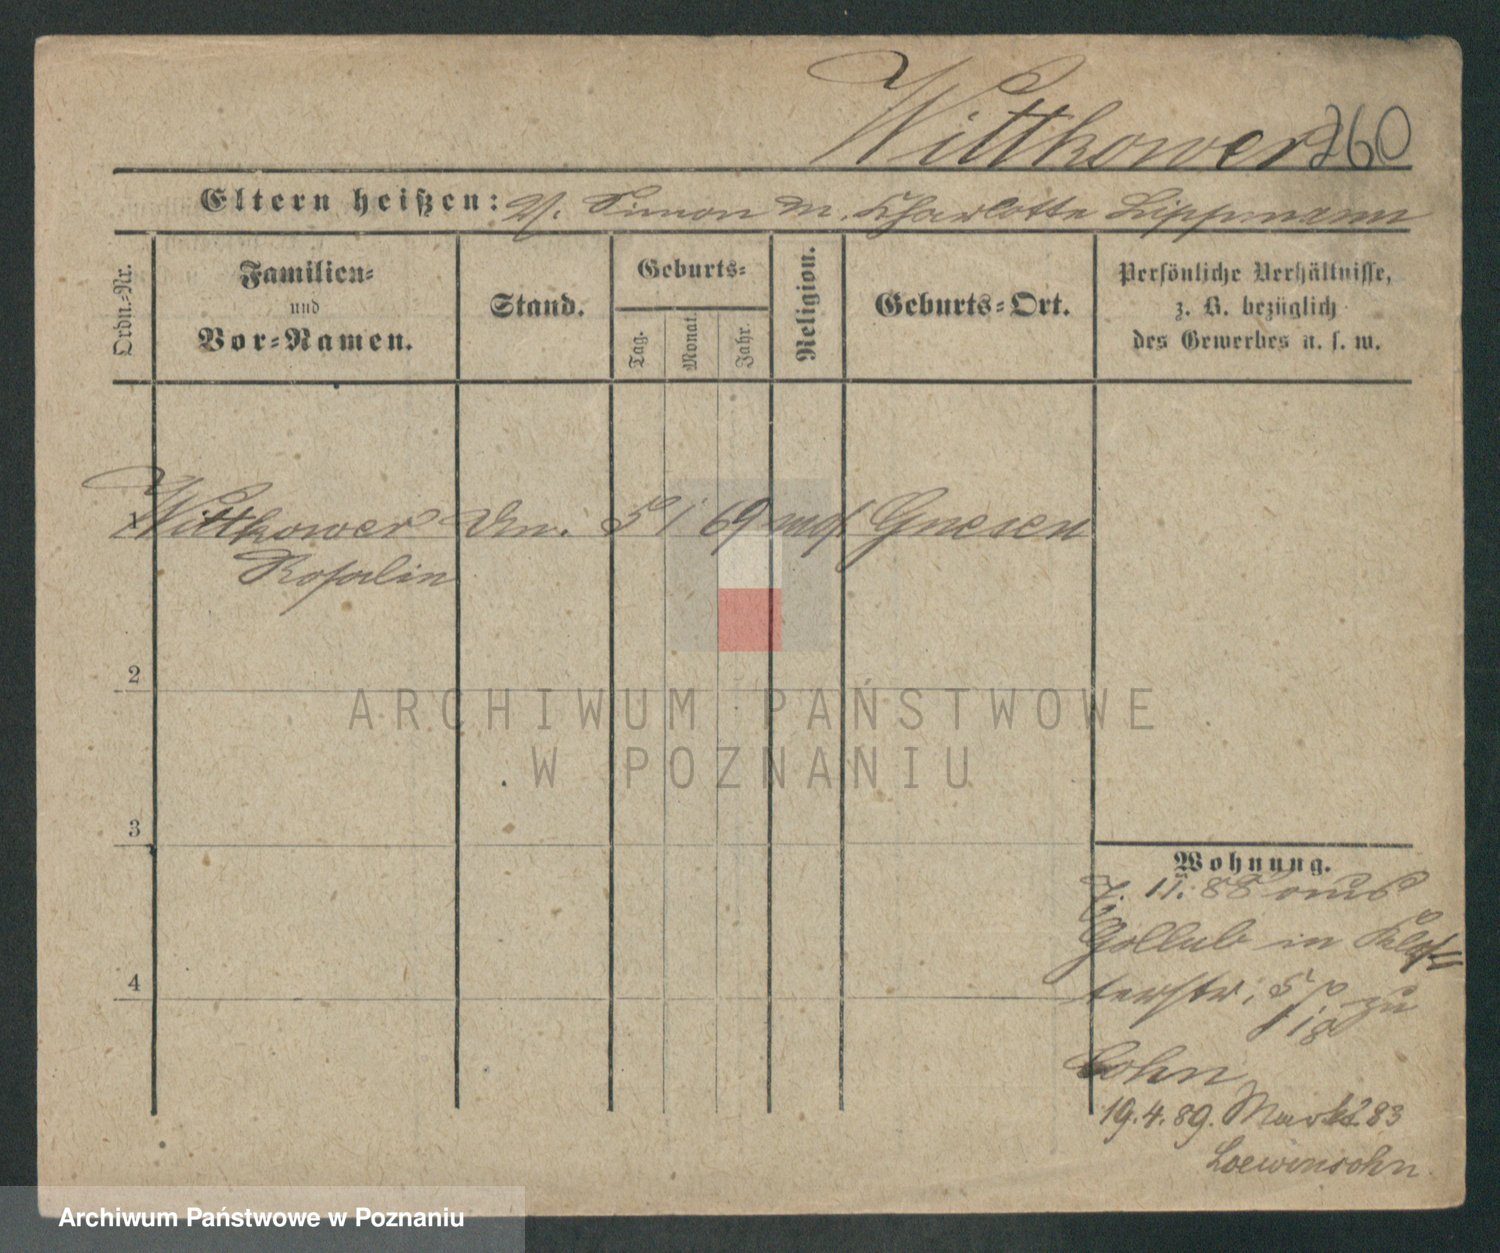 Wittkower 260
Eltern heißen: V. Simon M. Charlotte Lippmann
Ordn.-Nr.
Familien-
und
Vor-Namen.
Stand.
Geburts-
Tag.
Monat.
Jahr.
Religion.
Geburts-Ort.
Persönliche Verhältnisse,
z. B. bezüglich
des Gewerbes u. s. w.
Wittkower 5 1 69 mos Gnesen
Rosalin
2
3
4
Wohnung.
7. 11. 88 aus
Gollub in Klos-
terstr. zu
Cohn
19.4.89. Markt 83
Loewinsohn
ARCHIWUM PAŃSTWOWE
W POZNANIU
Archiwum Państwowe w Poznaniu